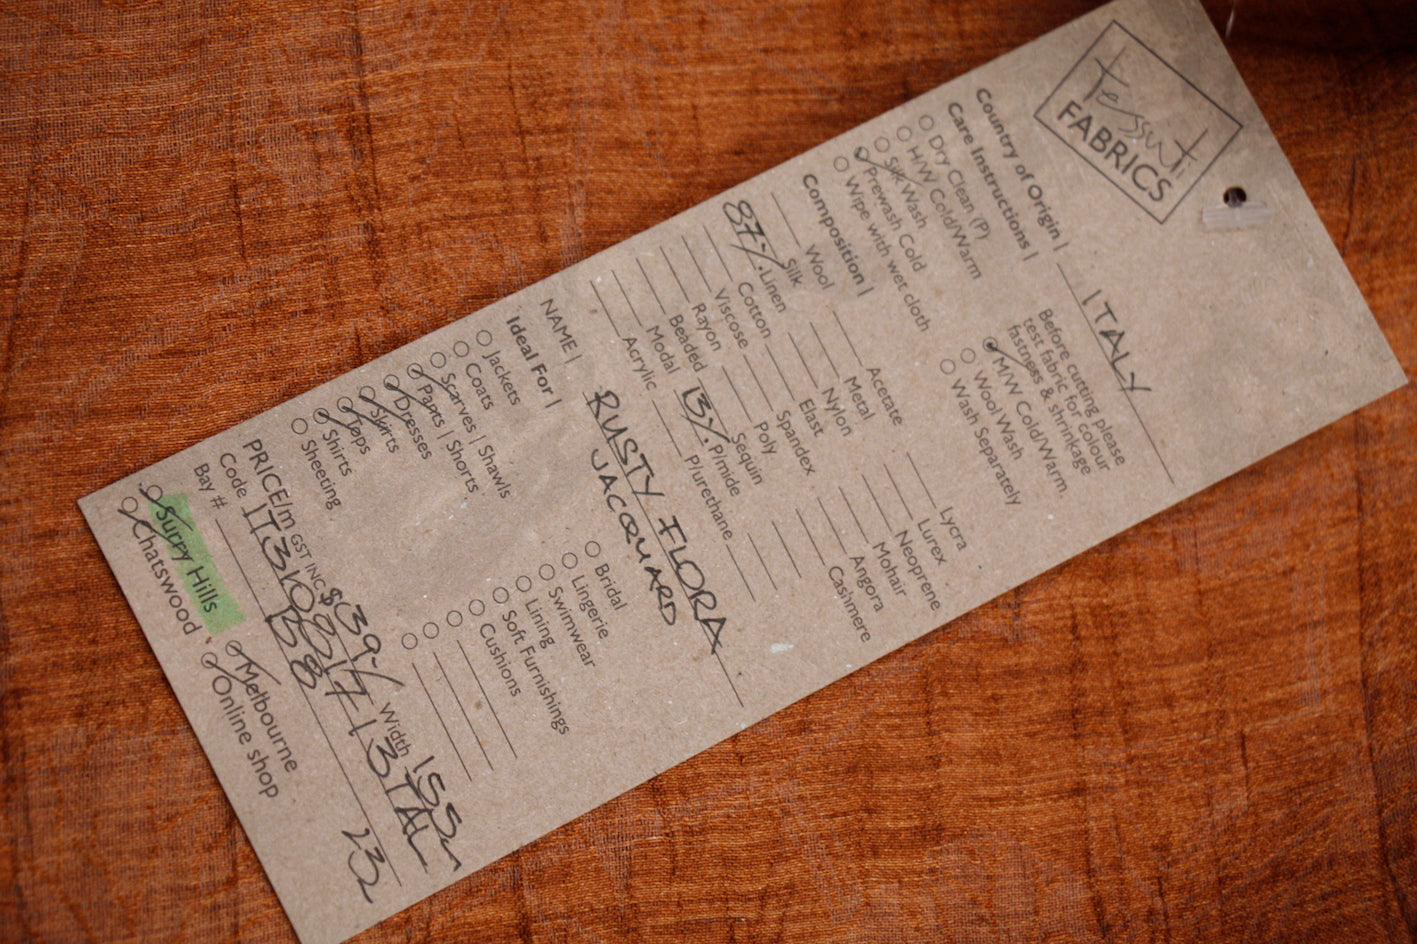 tessuti
FABRICS
Country of Origin | ITALY
Care Instructions |
Dry Clean (P)
H/W Cold/Warm
Silk Wash
Prewash Cold
Wipe with wet cloth
Before cutting please
test fabric for colour
fastness & shrinkage
M/W Cold/Warm.
Wool Wash
Wash Separately
Composition |
Wool
Silk
87% Linen
Cotton
Viscose
Rayon
Beaded
Modal
Acrylic
Acetate
Metal
Nylon
Elast
Spandex
Poly
Sequin
13% P/mide
P/urethane
Lycra
Lurex
Neoprene
Mohair
Angora
Cashmere
NAME | RUSTY FLORA
JACQUARD
Ideal For |
Jackets
Coats
Scarves | Shawls
Pants | Shorts
Dresses
Skirts
Tops
Shirts
Sheeting
Bridal
Lingerie
Swimwear
Lining
Soft Furnishings
Cushions
PRICE/m GST INC $39/ Width 155
Code
Bay #
Surry Hills
Chatswood
Melbourne
Online shop